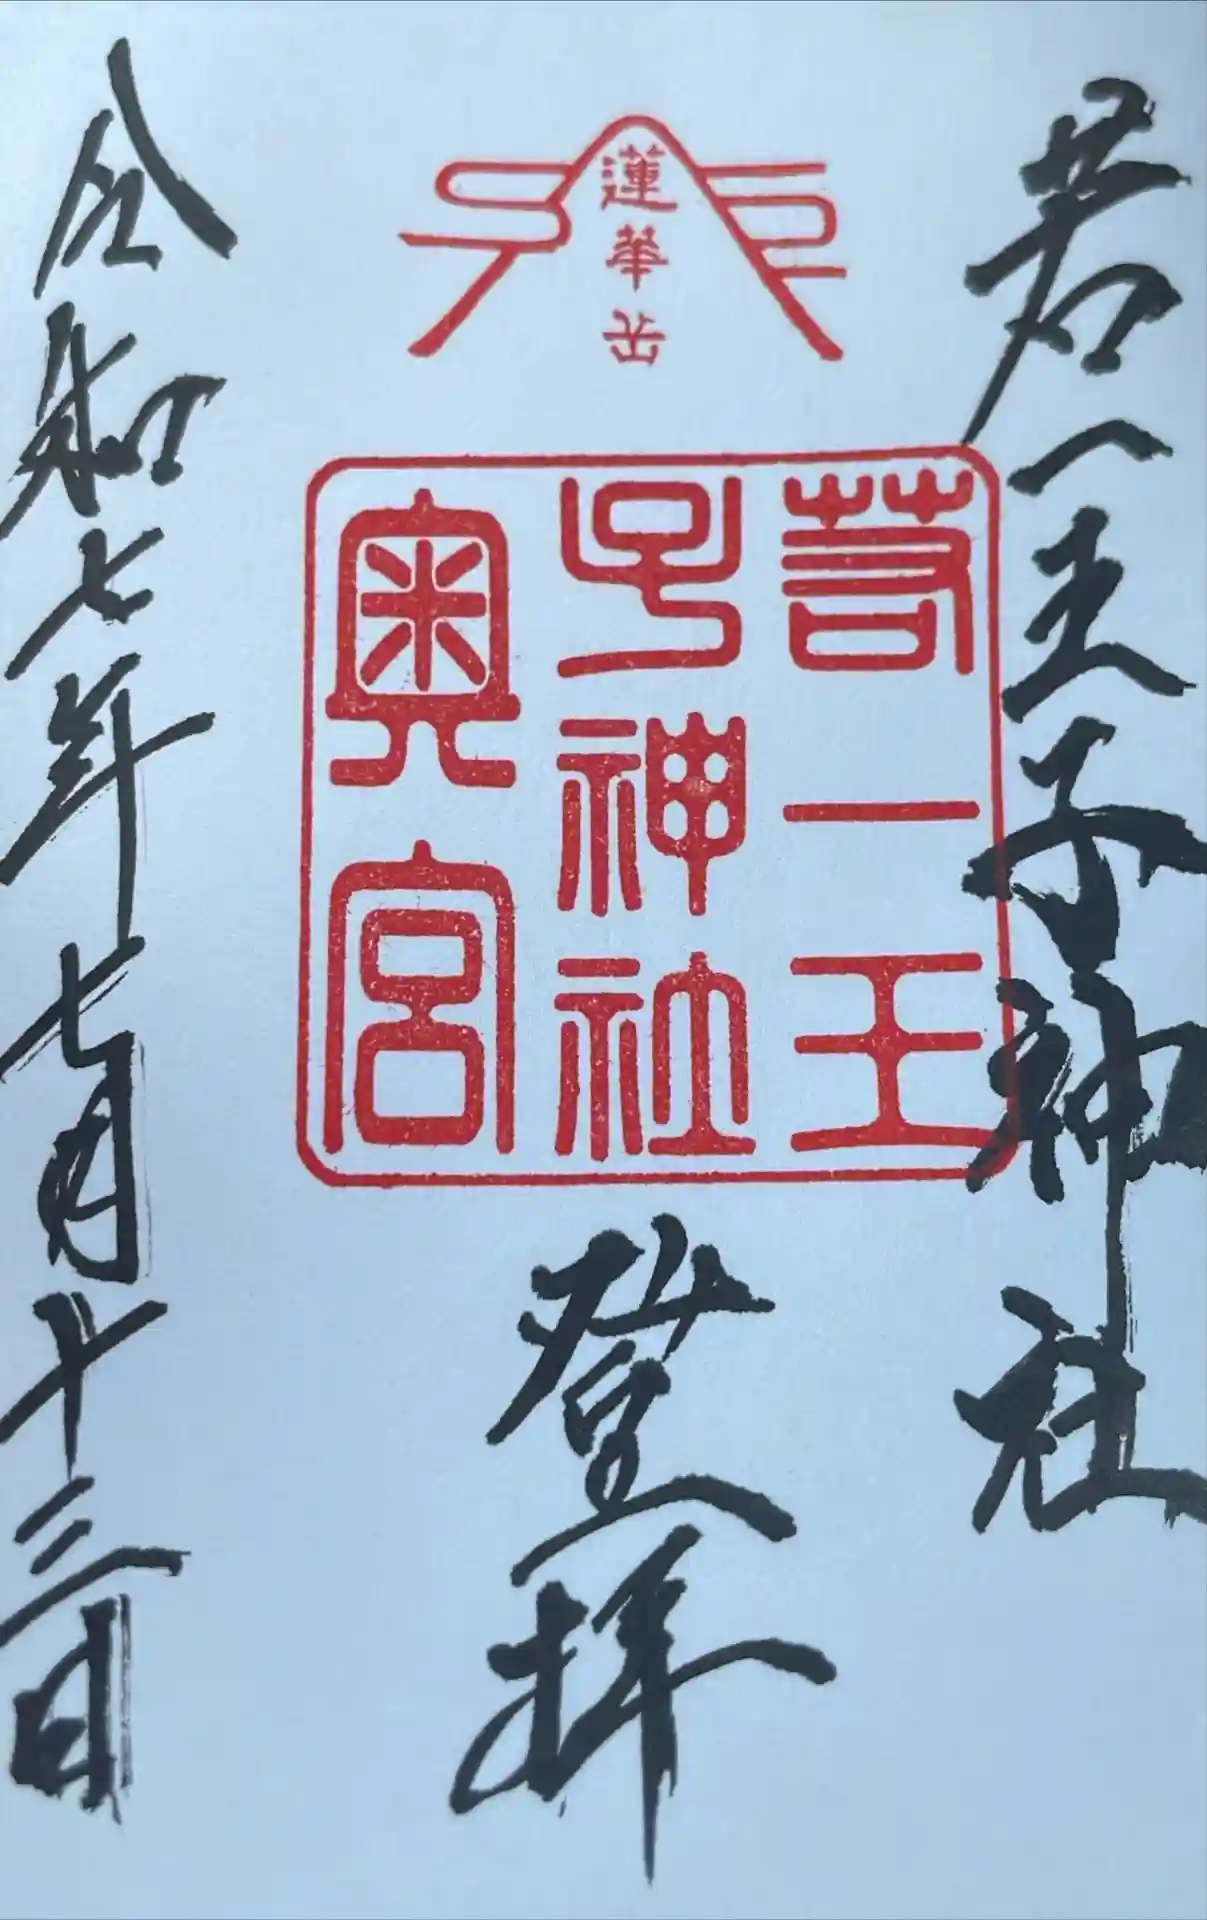 若一王子神社
蓮華岳
若一王
子神社
奥宮
登拝
令和七年七月十三日